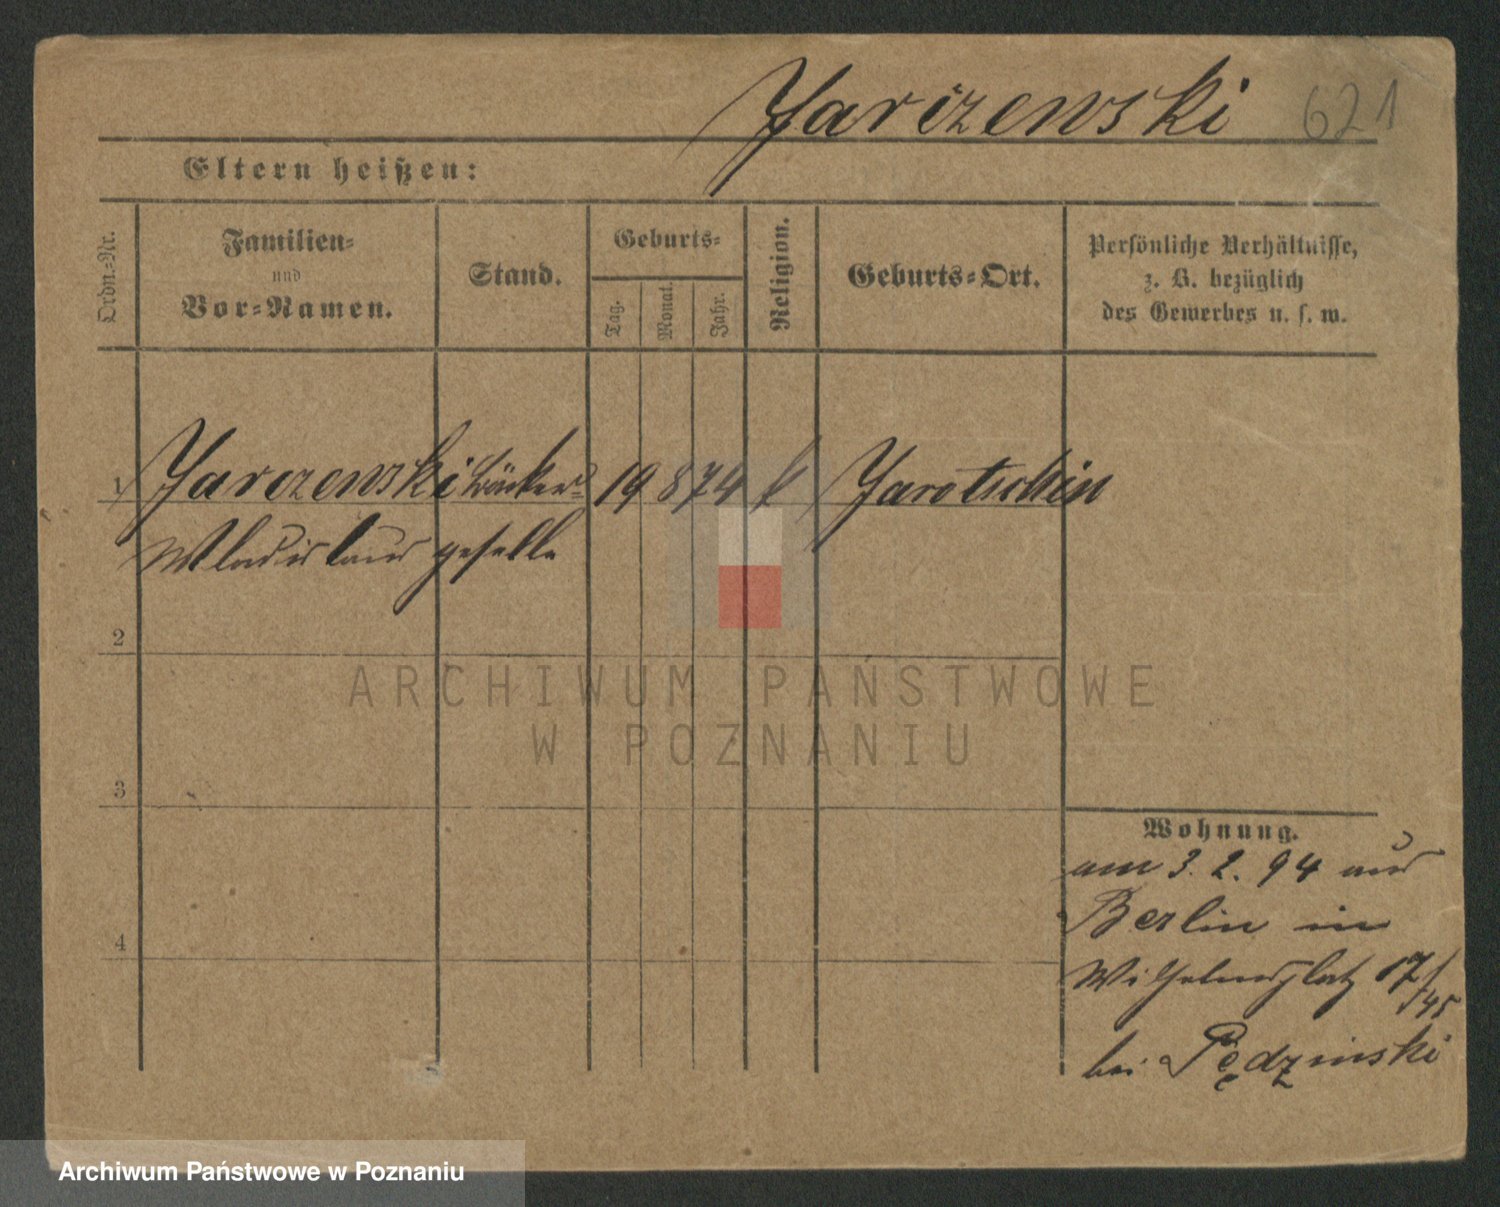 Jarczewski 621
Eltern heißen:
Ordn.-Nr.
Familien-
und
Vor-Namen.
Stand.
Geburts-
Tag.
Monat.
Jahr.
Religion.
Geburts-Ort.
Persönliche Verhältnisse,
z. B. bezüglich
des Gewerbes u. s. w.
1 Jarczewski Bäcker- 19 8 74 k Jarotschin
Wladislaus geselle
2
3
4
Wohnung.
am 3. 2. 94 aus
Berlin in
Wilhelmsplatz 17/
bei Pędzinski
ARCHIWUM PAŃSTWOWE
W POZNANIU
Archiwum Państwowe w Poznaniu